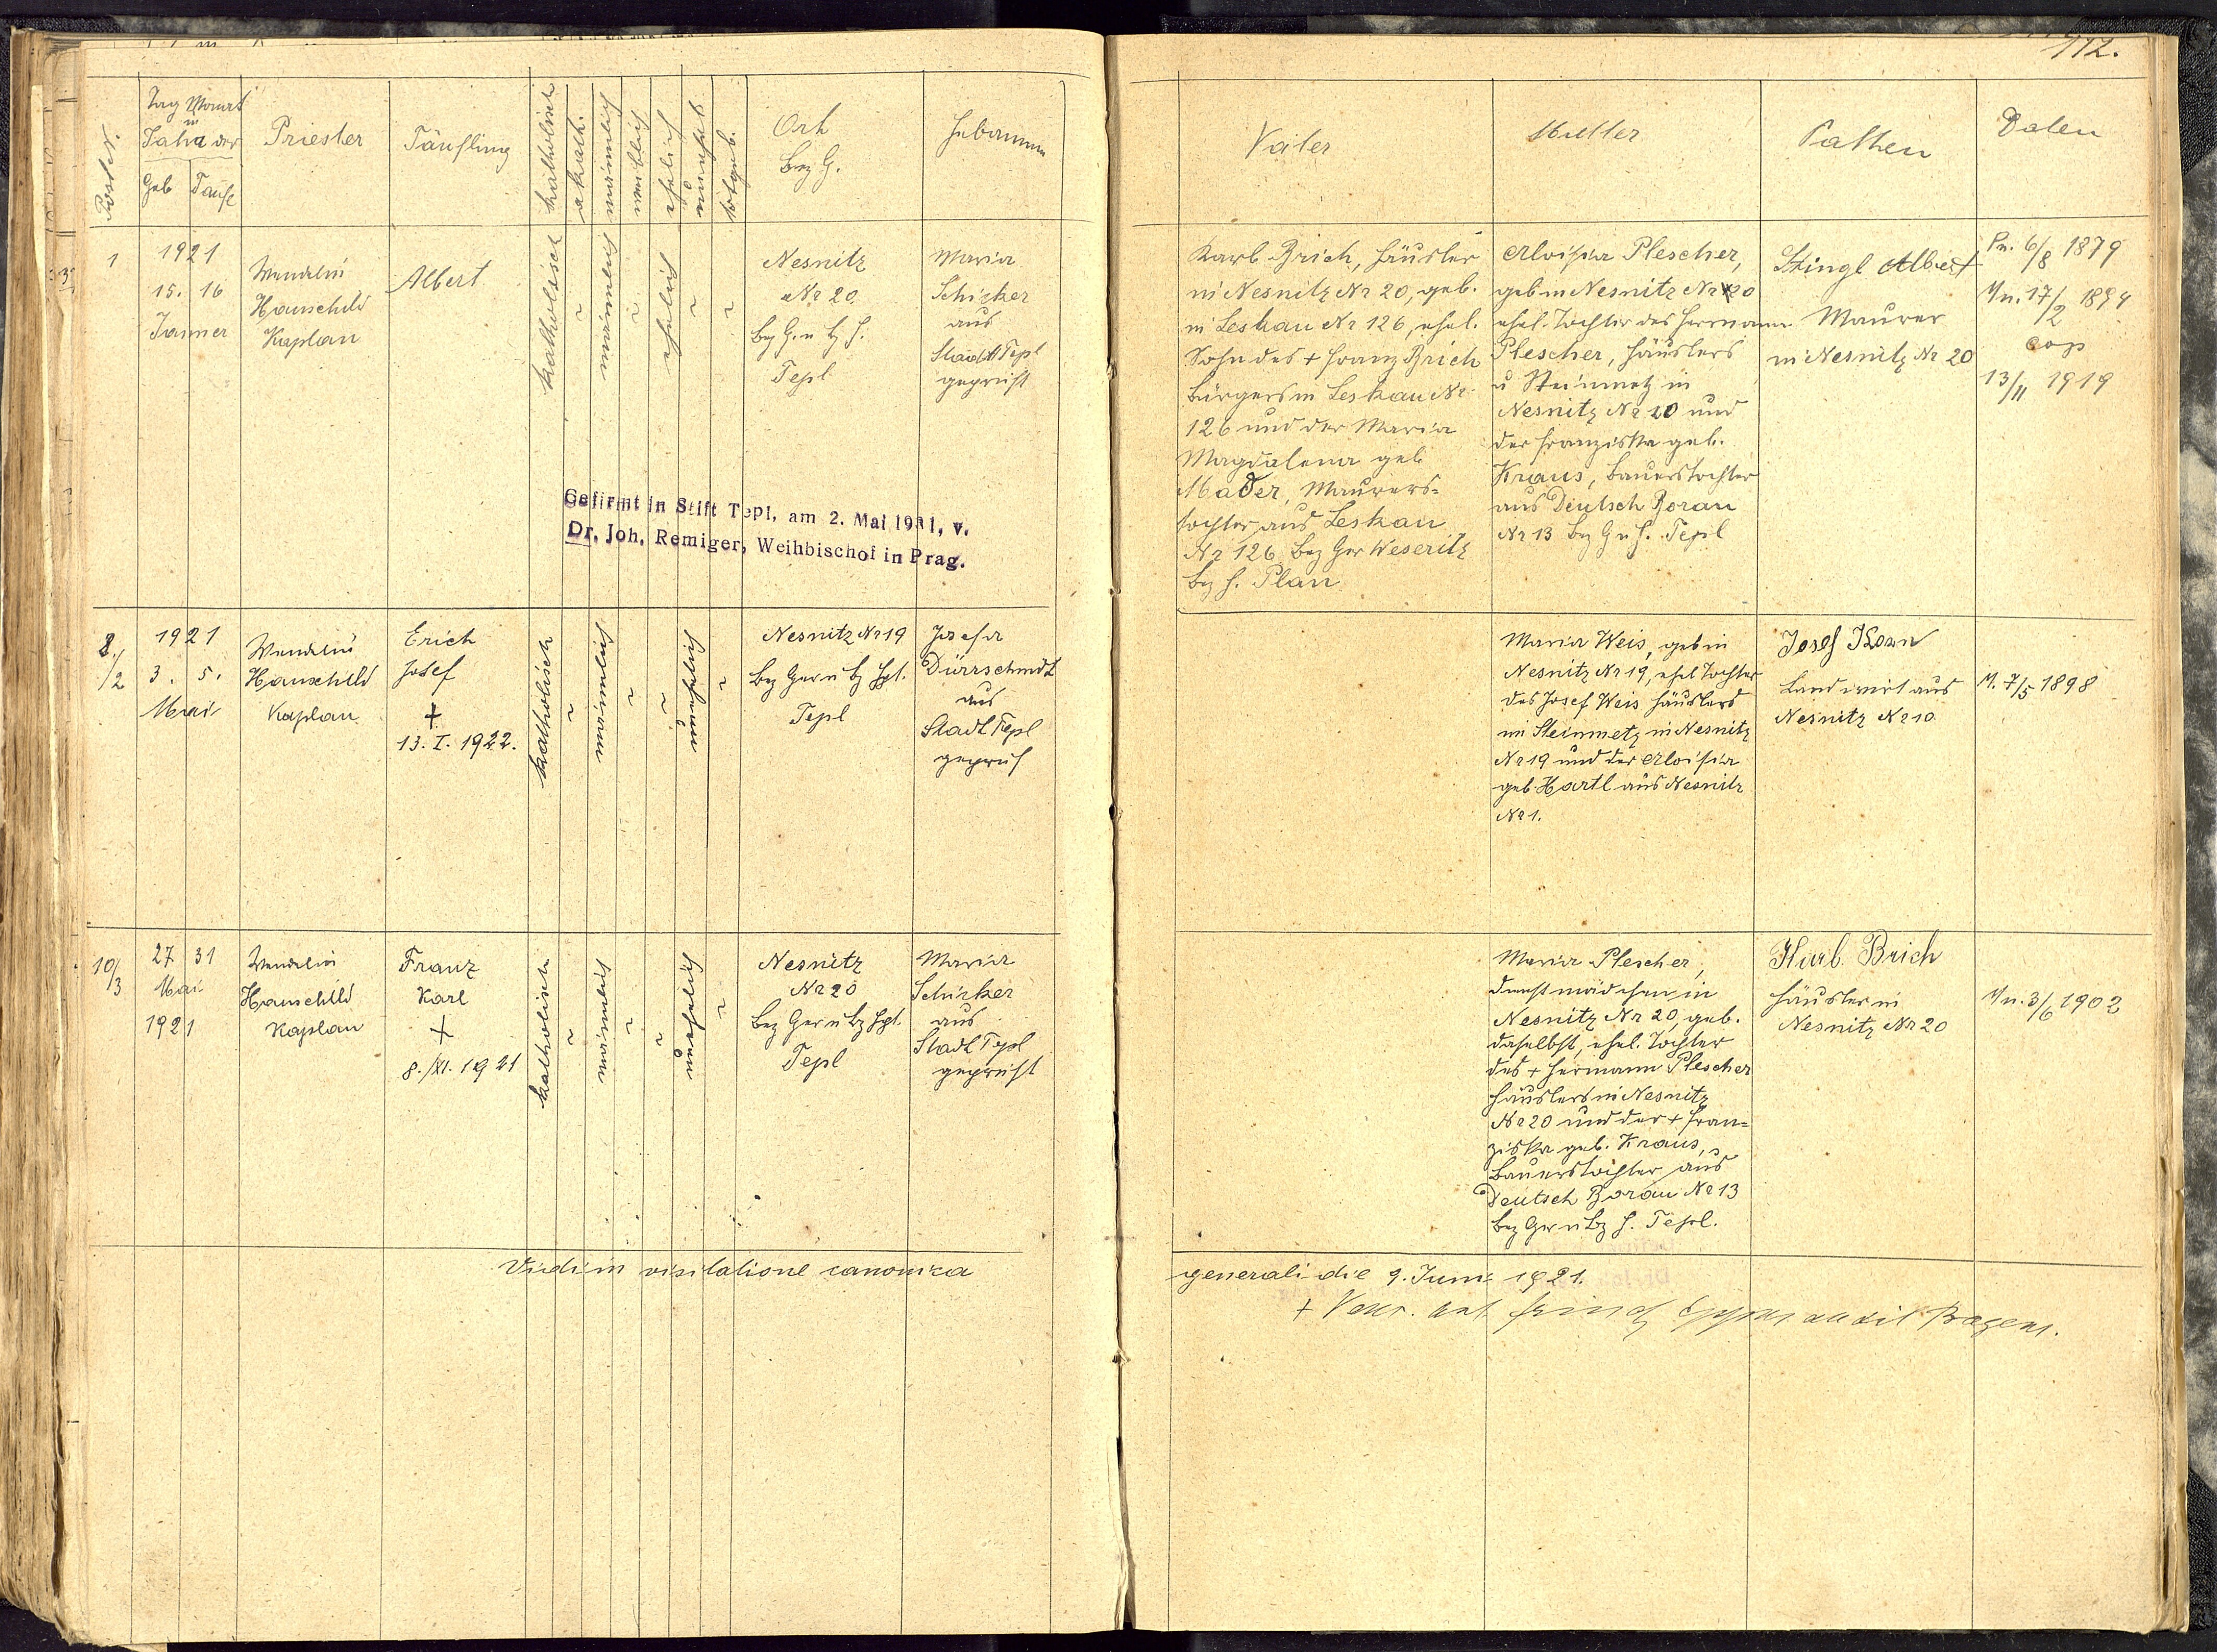 112.
Post Nr.
Tag Monat
u
Jahr der
Geb Taufe
Priester
Täufling
katholisch
akath.
männlich
weiblich
ehelich
unehel.
totgeb.
Ort
Bez G.
Hebamme
Vater
Mutter
Pathen
Daten
1
1921
15. 16
Jänner
Wendelin
Hauschild
Kaplan
Albert
katholisch
~
männlich
~
ehelich
~
~
Nesnitz
Nr 20
Bez G. u bz H.
Tepl
Maria
Schicker
aus
Stadt Tepl
geprüft
Gefirmt in Stift Tepl, am 2. Mai 1931, v.
Dr. Joh. Remiger, Weihbischof in Prag.
Karl Brich, Häusler
in Nesnitz Nr 20, geb.
in Leskau Nr 126, ehel.
Sohn des + Franz Brich
Bürgers in Leskau Nr
126 und der Maria
Magdalena geb
Mader, Maurers=
tochter aus Leskau
Nr 126 Bez Ger Weseritz
Bez H. Plan
Aloisia Plescher,
geb in Nesnitz Nr 20
ehel. Tochter des Hermann
Plescher, Häuslers
u Steinmetz in
Nesnitz Nr 20 und
der Franziska geb.
Kraus, Bauerstochter
aus Deutsch Borau
Nr 13 Bez G u H. Tepl
Stingl Albert
Maurer
in Nesnitz Nr 20
Pn. 6/8 1879
Mn. 17/2 1894
cop
13/11 1919
2./2
1921
3. 5.
Mai
Wendelin
Hauschild
Kaplan
Erich
Josef
+
13. I. 1922.
katholisch
~
männlich
~
~
unehelich
~
Nesnitz Nr 19
Bez Ger u bz Hpt.
Tepl
Josefa
Dürrschmidt
aus
Stadt Tepl
geprüf
Maria Weis, geb in
Nesnitz Nr 19, ehel Tochter
des Josef Weis Häuslers
und Steinmetz in Nesnitz
Nr 19 und der Aloisia
geb Hartl aus Nesnitz
Nr 1.
Josef
Landwirt aus
Nesnitz Nr 10
M. 7/5 1898
10/3
27 31
Mai
1921
Wendelin
Hauschild
Kaplan
Franz
Karl
+
8./XI. 1921
katholisch
~
männlich
~
~
unehelich
~
Nesnitz
Nr 20
Bez Ger u bz Hpt.
Tepl
Maria
Schicker
aus
Stadt Tepl
geprüft
Maria Plescher,
Dienstmädchen in
Nesnitz Nr 20, geb.
daselbst, ehel. Tochter
des + Hermann Plescher
Häuslers in Nesnitz
Nr 20 und der + Fran=
ziska geb. Kraus,
Bauerstochter aus
Deutsch Borau Nr 13
Bez Ger u bz H. Tepl.
Karl Brich
Häusler in
Nesnitz Nr 20
Mn. 3/6 1902
Vidi in visitatione canonica generali die 9. Juni 1921.